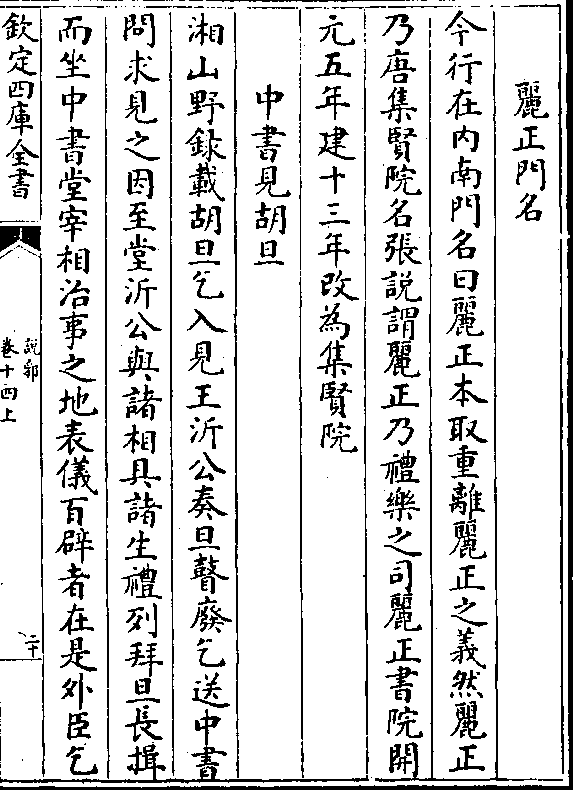 麗正門名
今行在内南門名曰麗正本取重離麗正之義然麗正
乃唐集賢院名張説謂麗正乃禮樂之司麗正書院開
元五年建十三年改為集賢院
中書見胡旦
湘山野録載胡旦乞入見王沂公奏旦瞽廢乞送中書
問求見之因至堂沂公與諸相具諸生禮列拜旦長揖
而坐中書堂宰相治事之地表儀百辟者在是外臣乞
欽定四庫全書
説郛
卷十四上
二十